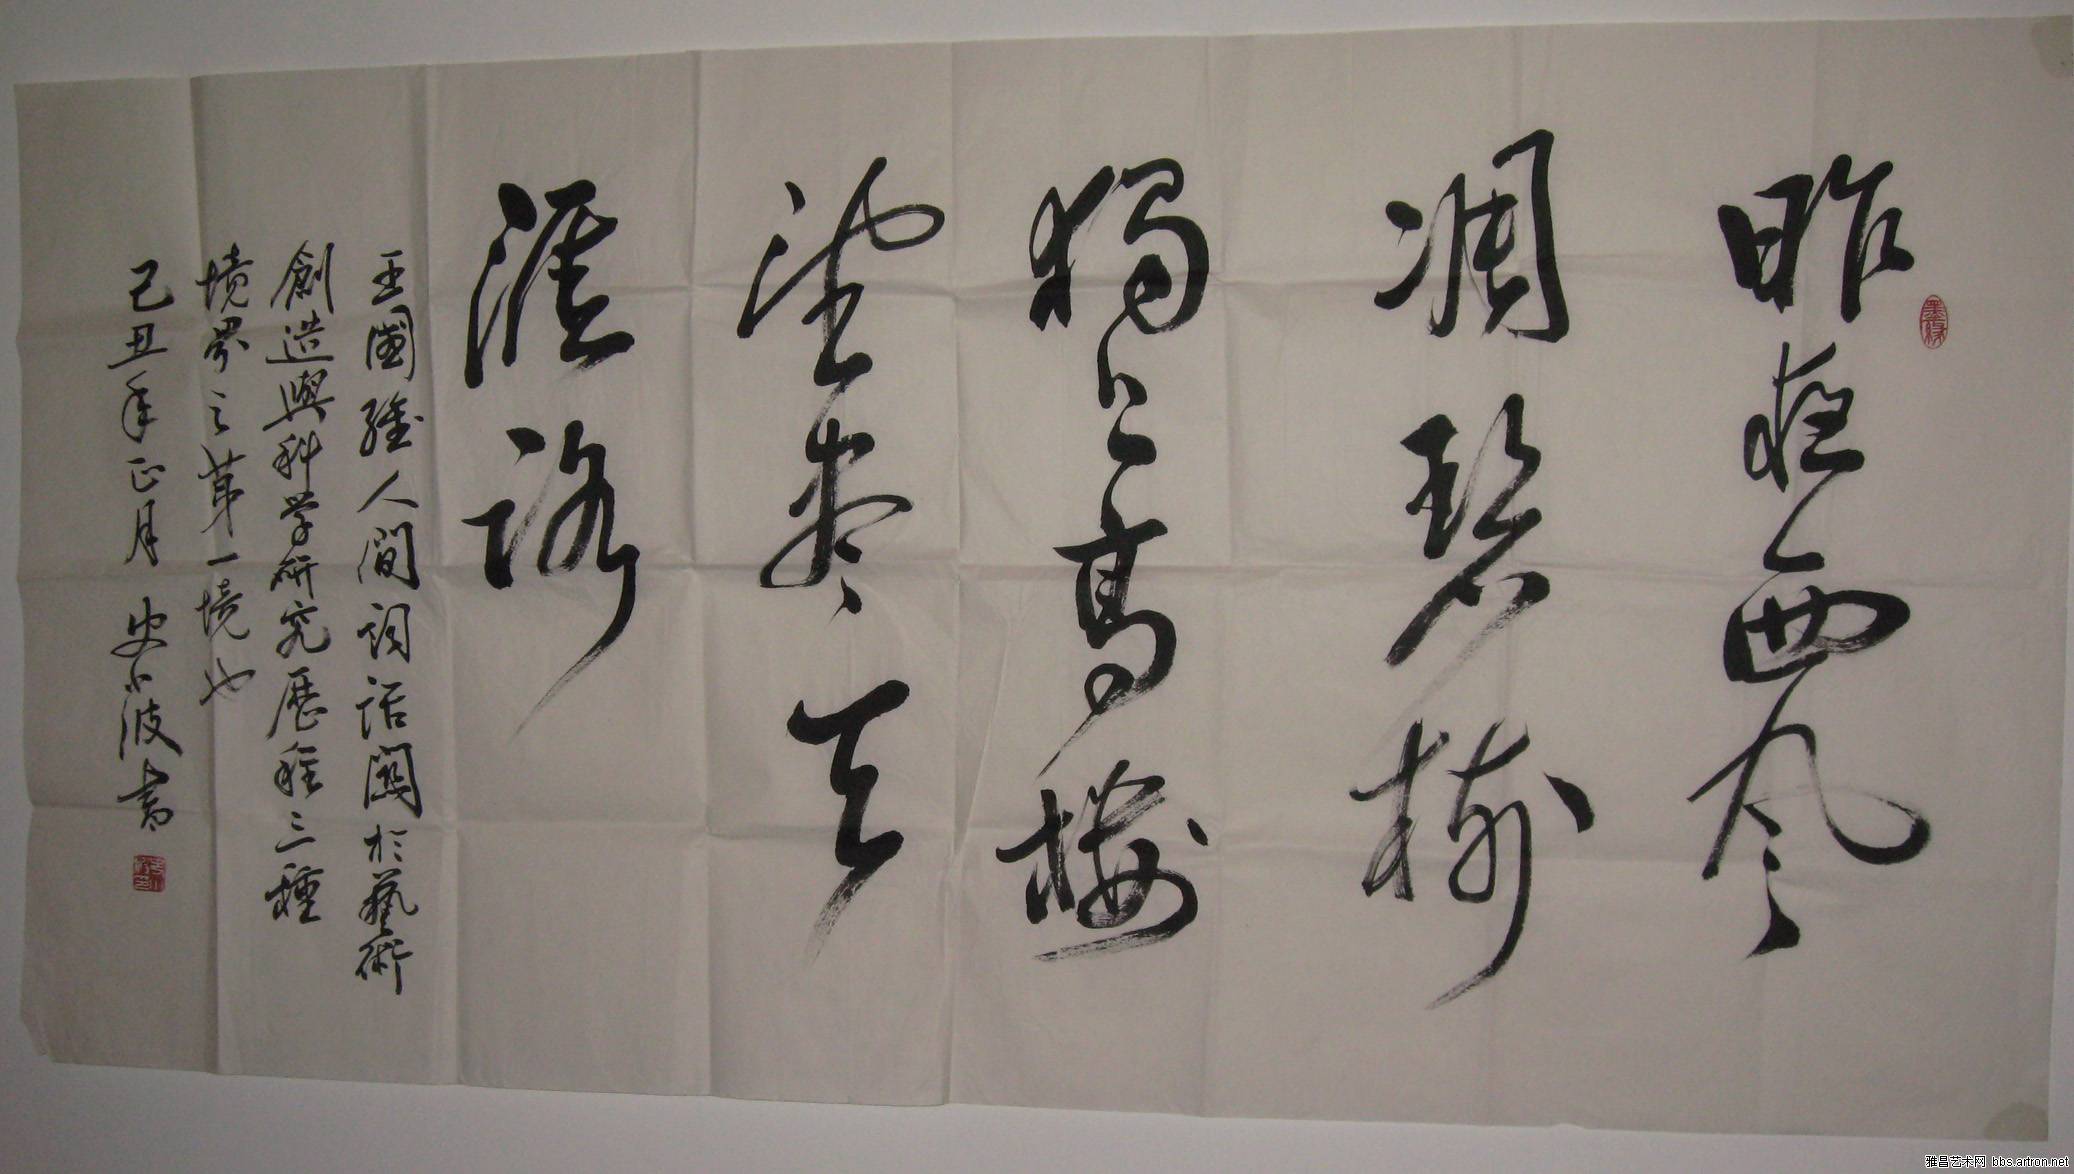 昨夜西风
凋碧树
獨上高樓
望尽天
涯路
王國維人間詞話關於藝術
創造與科学研究歷程三種
境界之第一境也
己丑年正月 史小波書
雅昌艺术网 bbs.artron.net